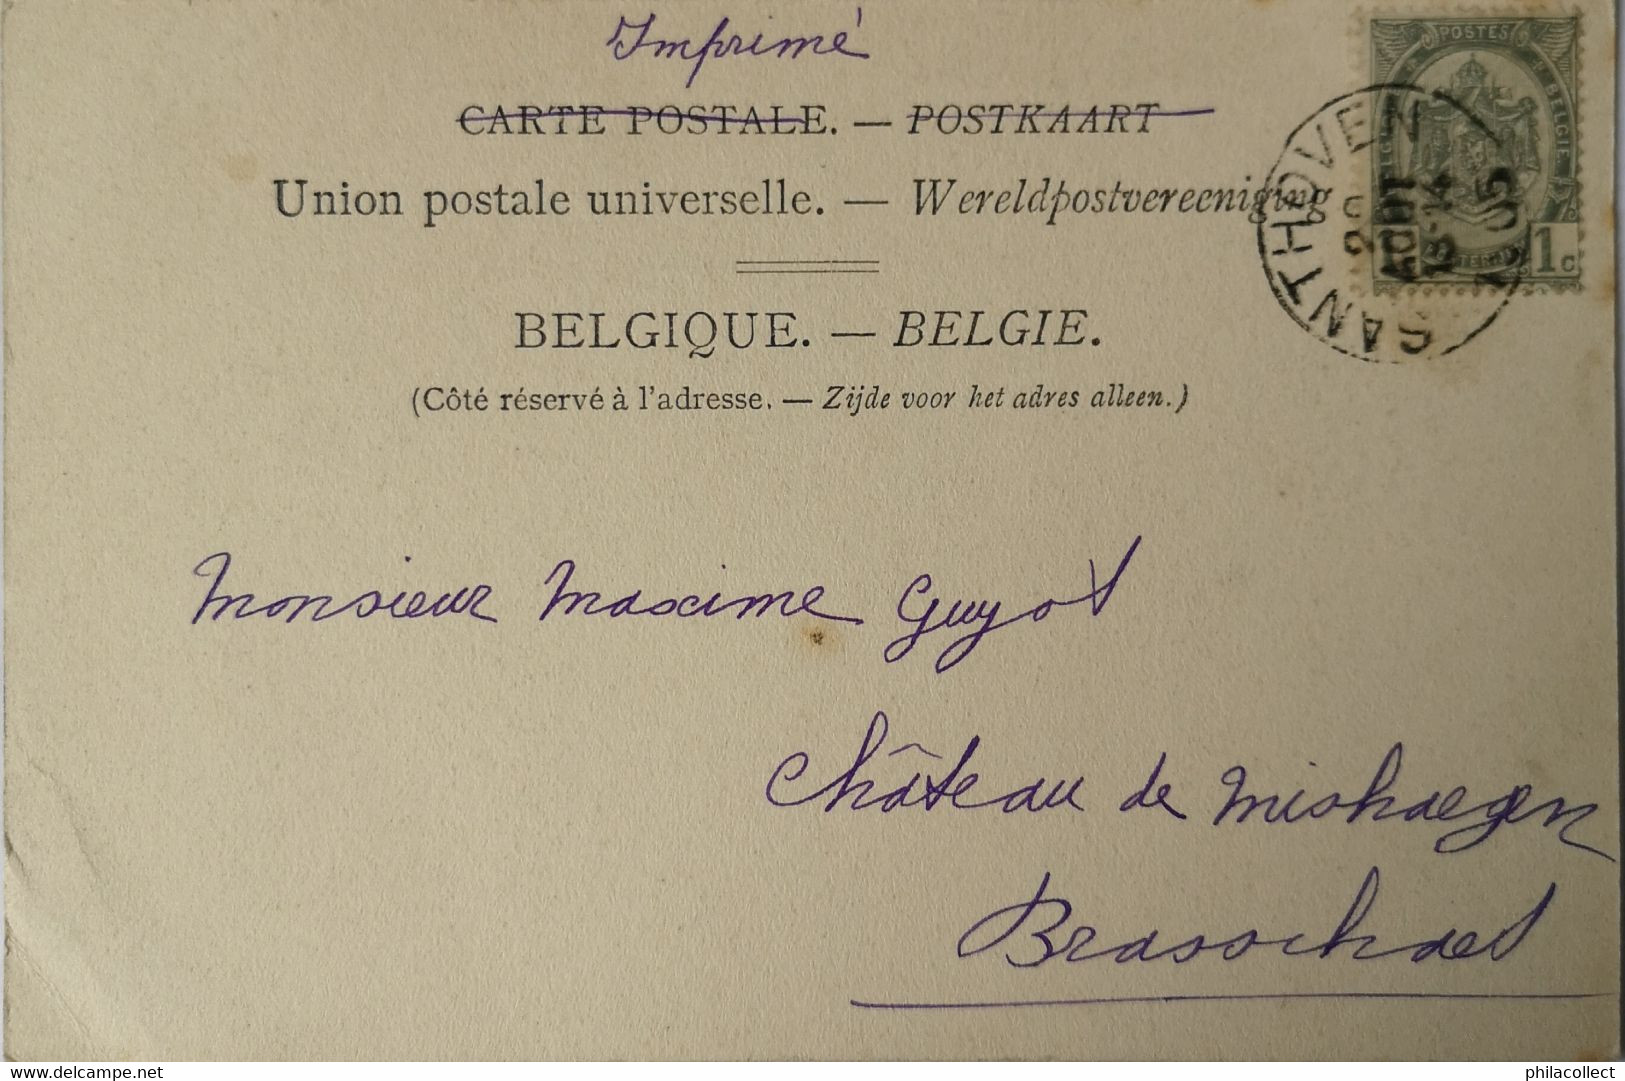 Imprimé
CARTE POSTALE. — POSTKAART
Union postale universelle. — Wereldpostvereeniging
BELGIQUE. — BELGIE.
(Côté réservé à l'adresse. — Zijde voor het adres alleen.)
POSTES
BELGIE
1c
SANTHOVEN
AOUT
13-14
1905
Monsieur Maxime Guyot
Château de Mishaegen
Brasschaet
delcampe.net
philacollect